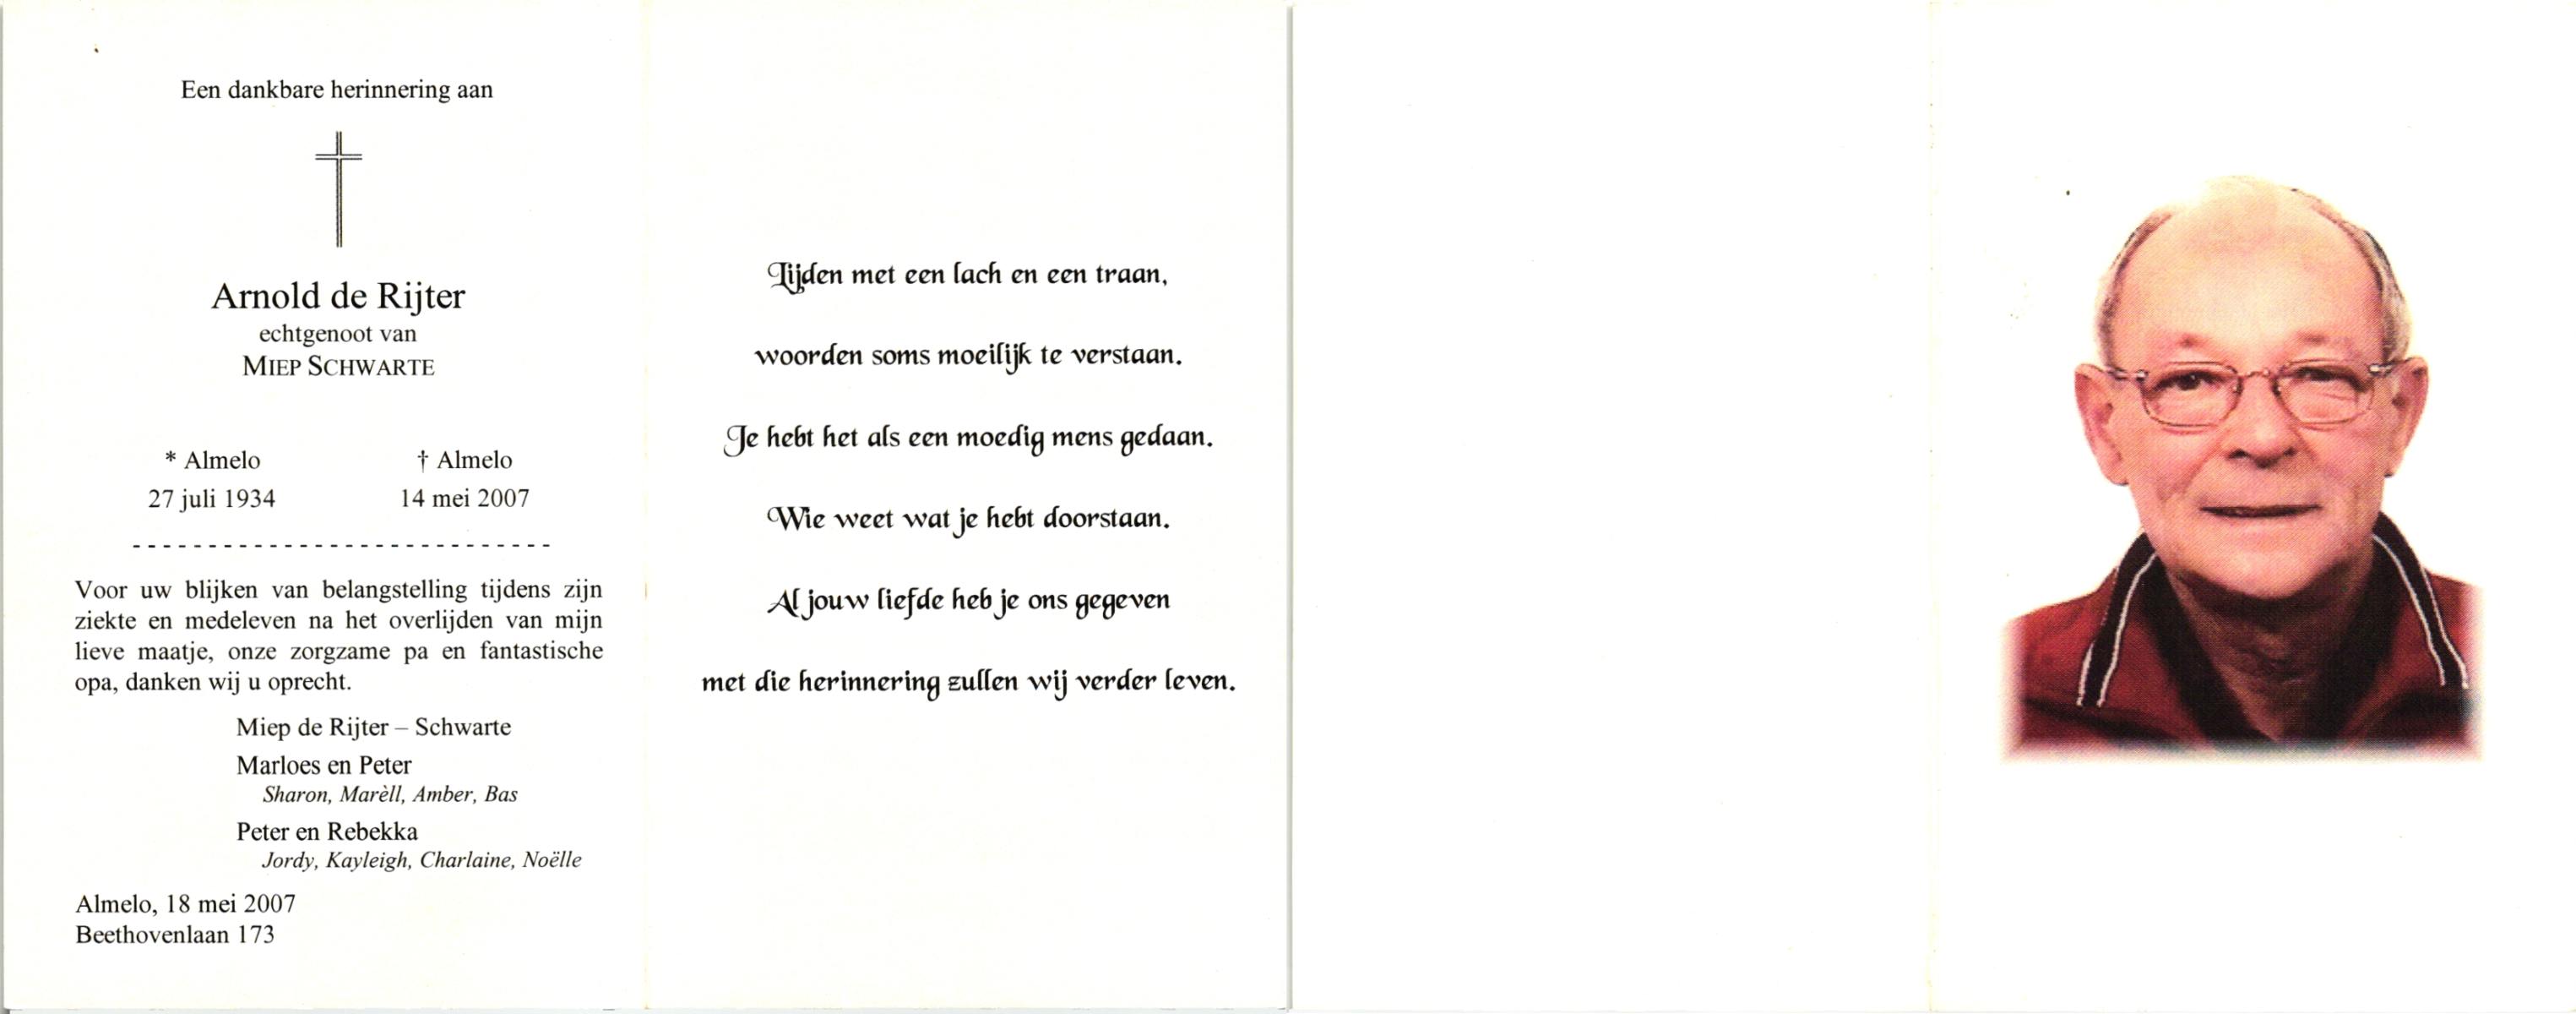 Een dankbare herinnering aan
Arnold de Rijter
echtgenoot van
MIEP SCHWARTE
* Almelo † Almelo
27 juli 1934 14 mei 2007
Voor uw blijken van belangstelling tijdens zijn
ziekte en medeleven na het overlijden van mijn
lieve maatje, onze zorgzame pa en fantastische
opa, danken wij u oprecht.
Miep de Rijter – Schwarte
Marloes en Peter
Sharon, Marèll, Amber, Bas
Peter en Rebekka
Jordy, Kayleigh, Charlaine, Noëlle
Almelo, 18 mei 2007
Beethovenlaan 173
Lijden met een lach en een traan,
woorden soms moeilijk te verstaan.
Je hebt het als een moedig mens gedaan.
Wie weet wat je hebt doorstaan.
Al jouw liefde heb je ons gegeven
met die herinnering zullen wij verder leven.